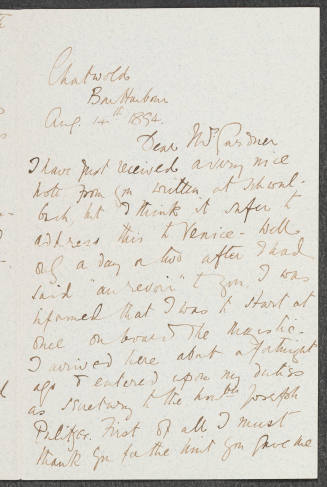 Chatwold
Bar Harbour
Aug. 14th 1894.
Dear Mrs Gardner
I have just received a very nice
note from you written at Schwal-
bach, but I think it safer to
address this to Venice - Well
only a day or two after I had
said "au revoir" to you, I was
informed that I was to start at
once on board the Majestic.
I arrived here about a fortnight
ago & entered upon my duties
as secretary to the Hon'ble Joseph
Pulitzer. First of all I must
thank you for the hint you gave me